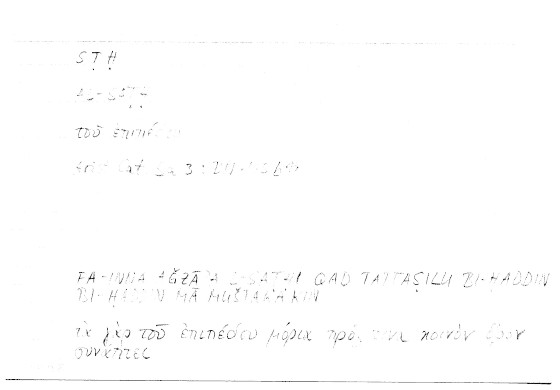 SṬḤ
AS-SAṬḤ
τοῦ ἐπιπέδου
Arist Cat
FA-INNA AĞZĀ'A S-SAṬḤI QAD TATTAṢILU BI-ḤADDIN
BI-ḤADDIN MĀ MUŠTARAKIN
τὰ γὰρ τοῦ ἐπιπέδου μόρια πρός τινα κοινὸν ὅρον
συνάπτει